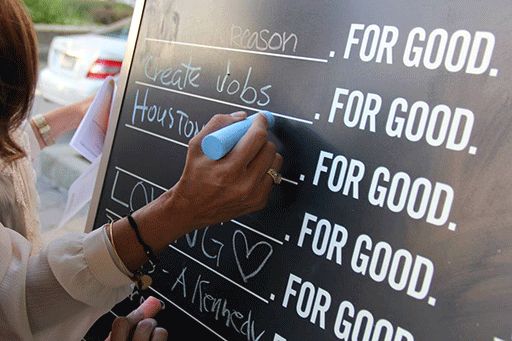 reason . FOR GOOD.
Create Jobs . FOR GOOD.
Houston . FOR GOOD.
LO . FOR GOOD.
NG ♡ . FOR GOOD.
- A Kennedy FOR GOOD.